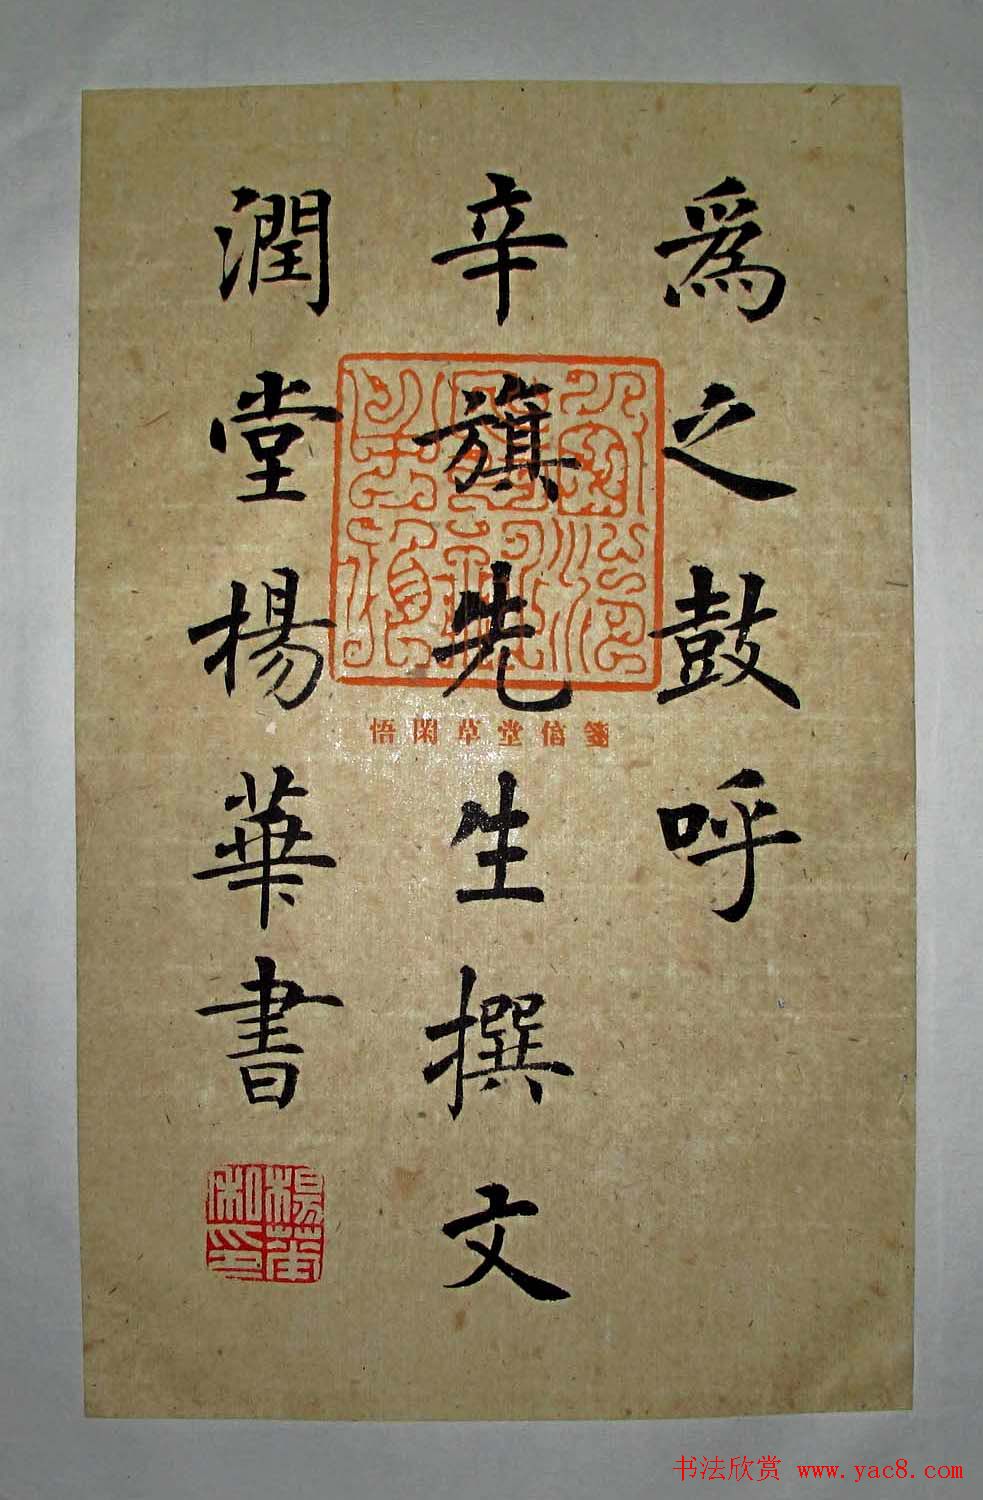 為之鼓呼
辛旗先生撰文
潤堂楊華書
悟閑草堂信箋
書法欣赏 www.yac8.com